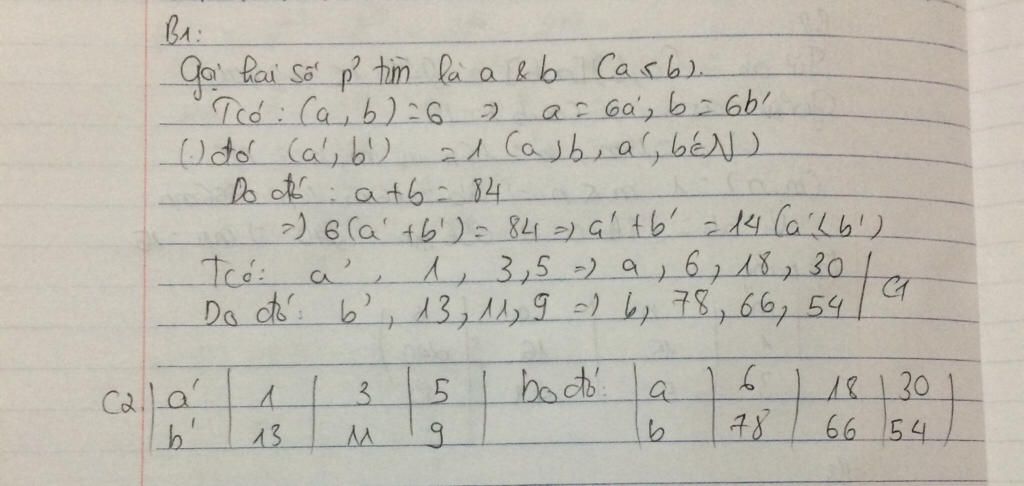 B1:
Gọi hai số p² tìm là a & b (a < b).
Tcó: (a, b) = 6 => a = 6a', b = 6b'
(.) đó (a', b') = 1 (a, b, a', b' ∈ N)
Do đó: a + b = 84
=> 6(a' + b') = 84 => a' + b' = 14 (a' < b')
Tcó: a', 1, 3, 5 => a, 6, 18, 30
Do đó: b', 13, 11, 9 => b, 78, 66, 54 | C1
C2. | a' | 1 | 3 | 5 | Do đó: | a | 6 | 18 | 30
| b' | 13 | 11 | 9 | | b | 78 | 66 | 54 |